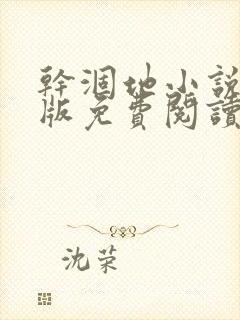 幹涸地小說
版免費閱讀
沈荣